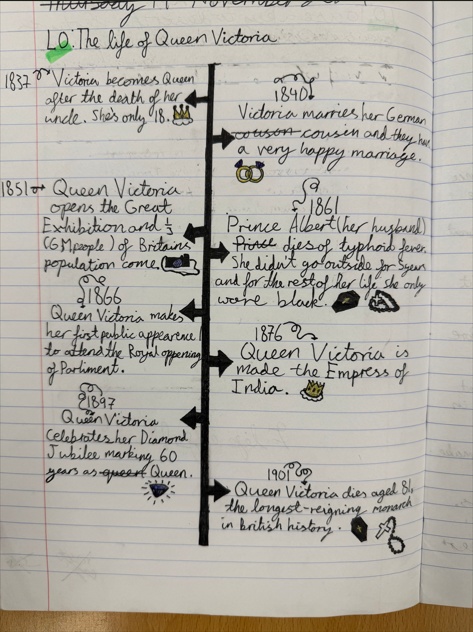 Thursday 14 November
LO: The life of Queen Victoria
1837
Victoria becomes Queen
after the death of her
uncle. She's only 18.
1840
Victoria marries her German
couson cousin and they have
a very happy marriage.
1851
Queen Victoria
opens the Great
Exhibition and 1/3
(6M people) of Britains
population come.
1861
Prince Albert (her husband)
Prince dies of typhoid fever.
She didn't go outside for 5 years
and for the rest of her life she only
wore black.
1866
Queen Victoria makes
her first public appearence
to attend the Royal oppening
of Parliment.
1876
Queen Victoria is
made the Empress of
India.
1897
Queen Victoria
celebrates her Diamond
Jubilee marking 60
years as queen Queen.
1901
Queen Victoria dies aged 81,
the longest-reigning monarch
in british history.